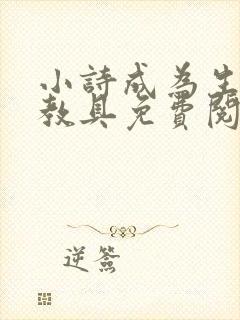 小詩成為生
教具免費閱
逆簽